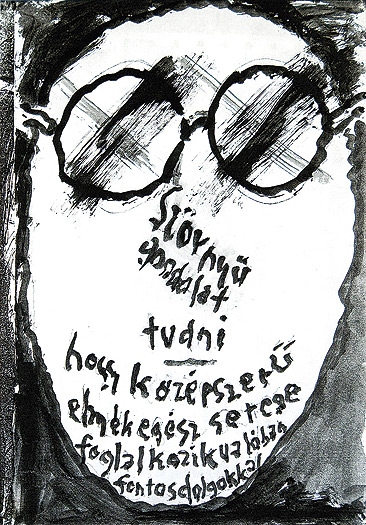 Szörnyű
gondolat
tudni
hogy középszerű
elmék egész serege
foglalkozik valóban
fontos dolgokkal